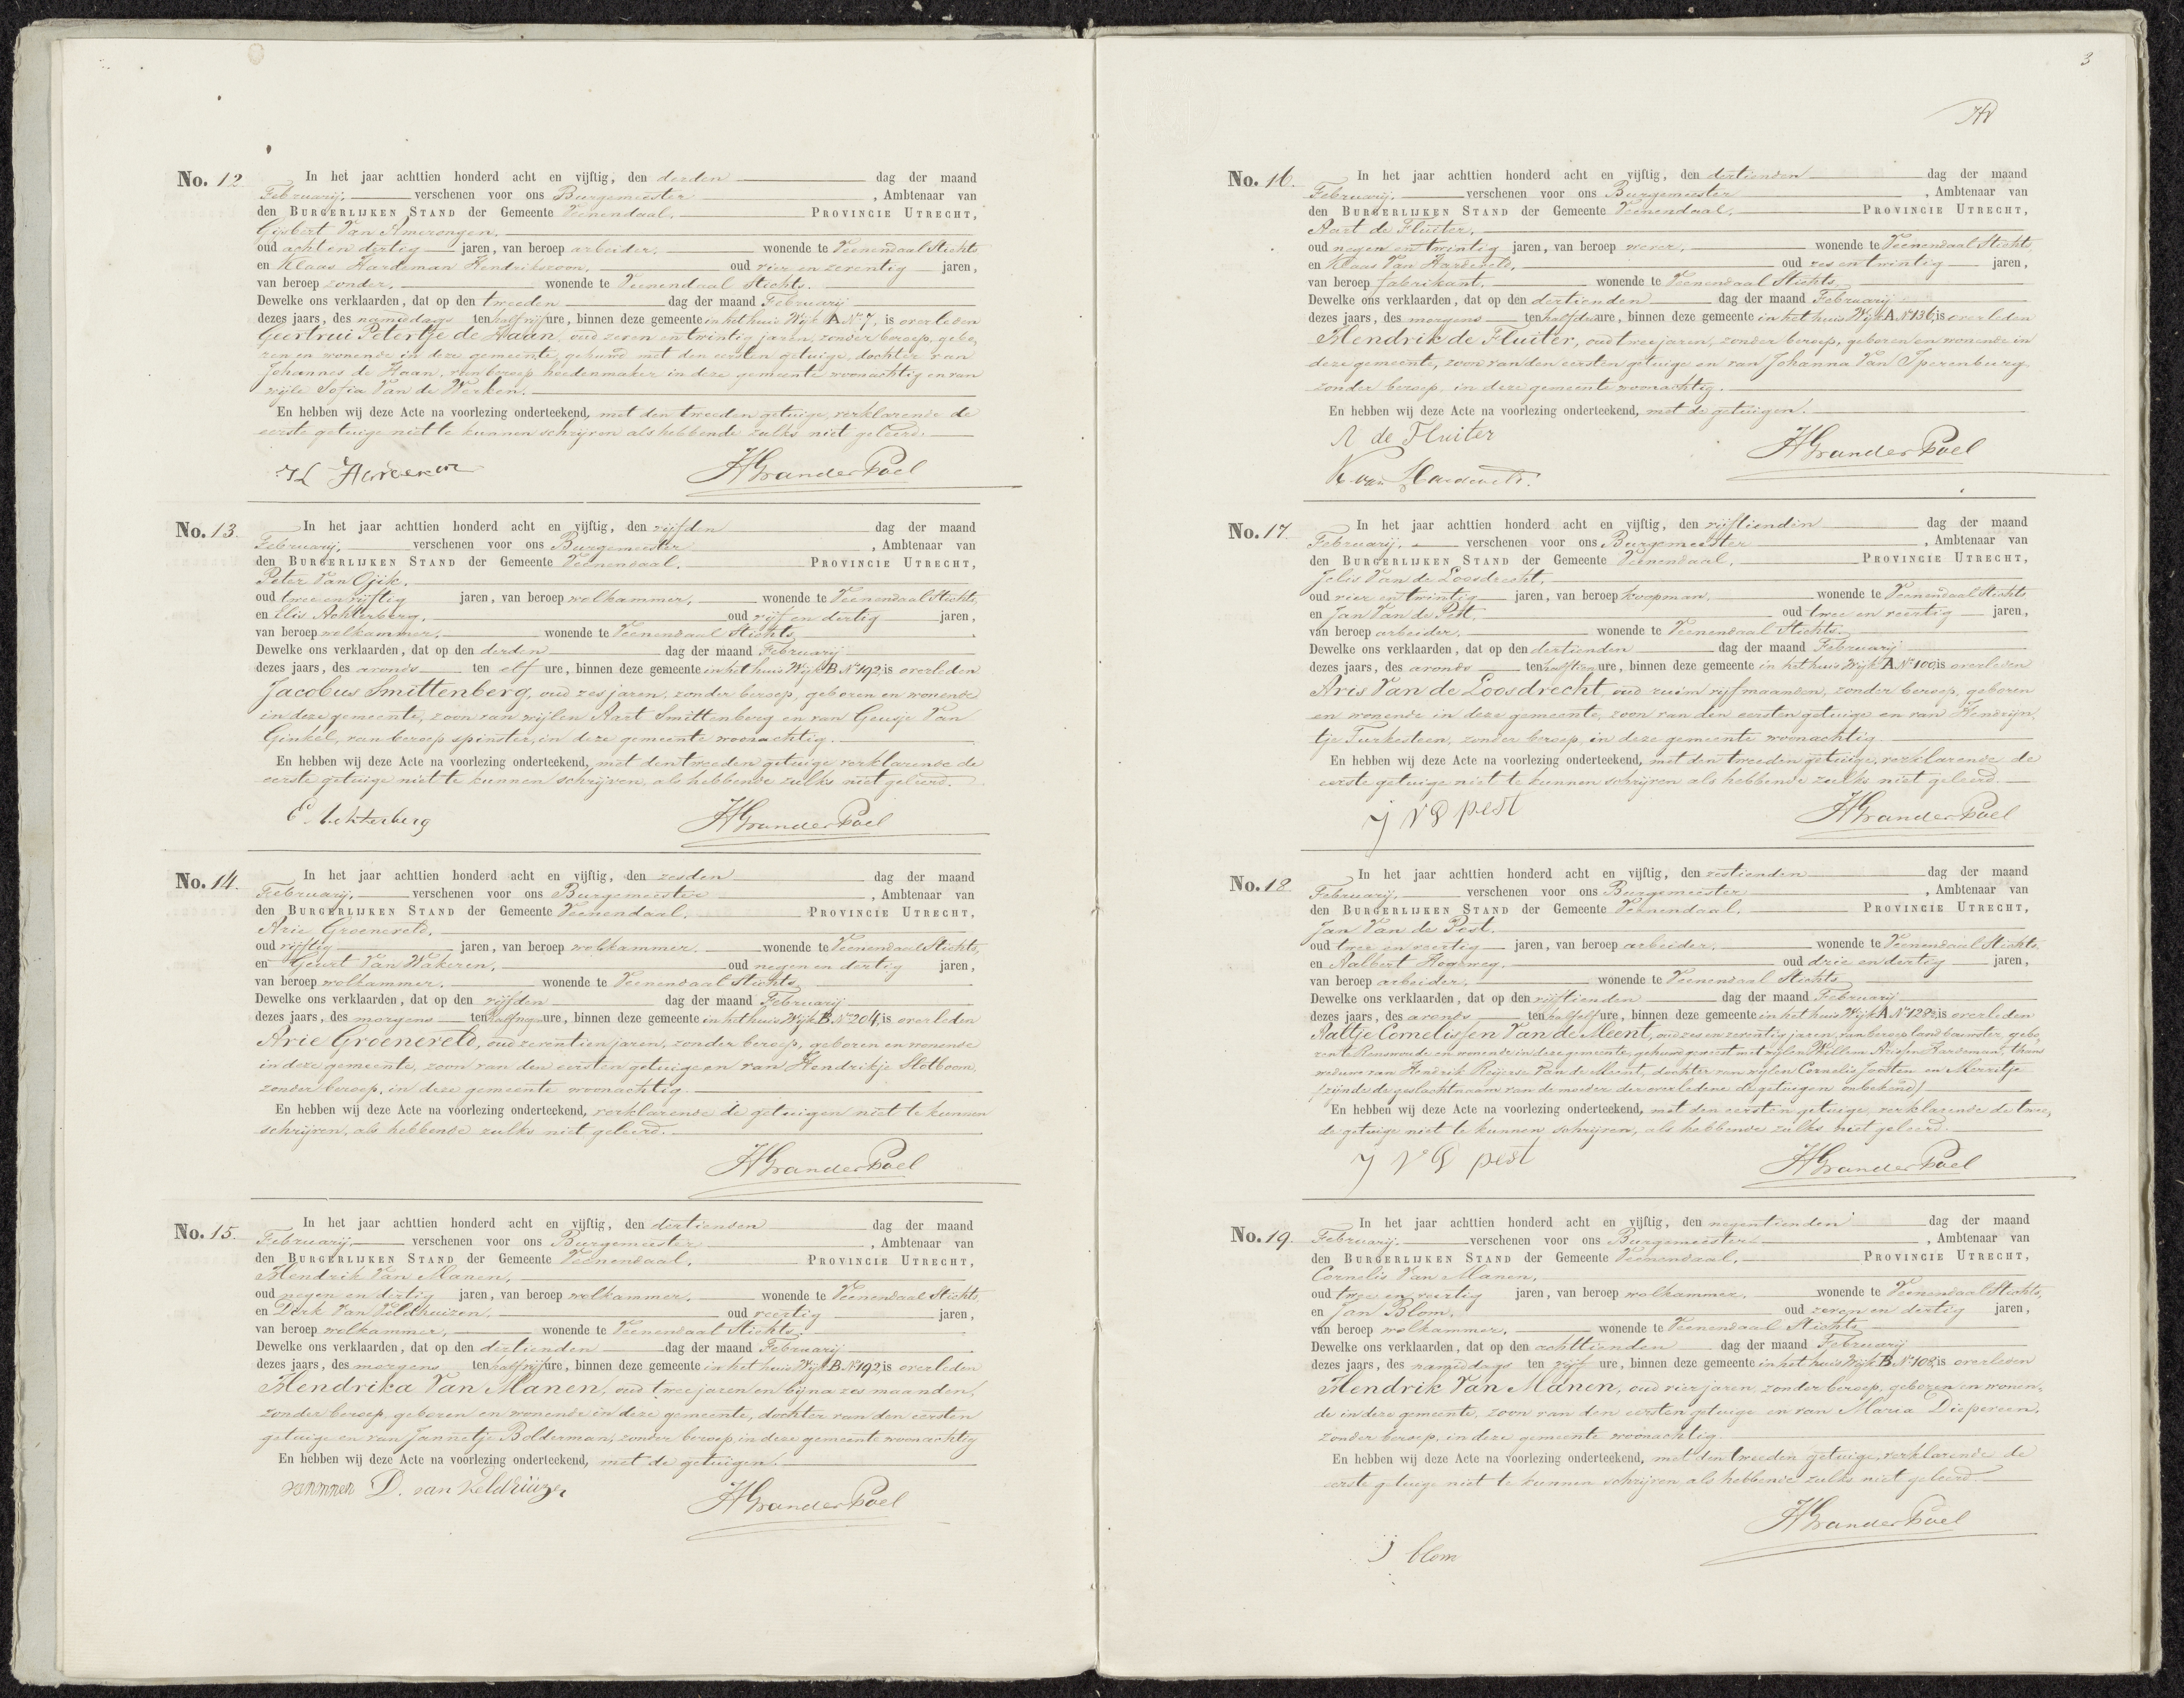 No. 12. In het jaar achttien honderd acht en vijftig, den derden dag der maand
Februarij, verschenen voor ons Burgemeester, Ambtenaar van
den Burgerlijken Stand der Gemeente Veenendaal, Provincie Utrecht,
Gijsbert Van Amerongen,
oud acht en dertig jaren, van beroep arbeider, wonende te Veenendaal Stichts
en Klaas Hardeman Hendrikszoon, oud vier en zeventig jaren,
van beroep zonder, wonende te Veenendaal Stichts.
Dewelke ons verklaarden, dat op den tweeden dag der maand Februarij
dezes jaars, des namiddags ten half vijf ure, binnen deze gemeente in het huis Wijk A No 7, is overleden
Geertrui Petertje de Haan, oud zeven en twintig jaren, zonder beroep, gebo,
ren en wonende in deze gemeente, gehuwd met den eersten getuige, dochter van
Johannes de Haan, van beroep hoedenmaker in deze gemeente woonachtig en van
wijle Sofia Van de Werken.
En hebben wij deze Acte na voorlezing onderteekend, met den tweeden getuige, verklarende de
eerste getuige niet te kunnen schrijven als hebbende zulks niet geleerd.
HGvanderPoel
No. 13. In het jaar achttien honderd acht en vijftig, den vijfden dag der maand
Februarij, verschenen voor ons Burgemeester, Ambtenaar van
den Burgerlijken Stand der Gemeente Veenendaal, Provincie Utrecht,
Peter Van Ojik,
oud twee en vijftig jaren, van beroep wolkammer, wonende te Veenendaal Stichts,
en Elis Achterberg, oud vijf en dertig jaren,
van beroep wolkammer, wonende te Veenendaal Stichts,
Dewelke ons verklaarden, dat op den derden dag der maand Februarij
dezes jaars, des avonds ten elf ure, binnen deze gemeente in het huis Wijk B No 192, is overleden
Jacobus Smittenberg, oud zes jaren, zonder beroep, geboren en wonende
in deze gemeente, zoon van wijlen Aart Smittenberg en van Geusje Van
Ginkel, van beroep spinster, in deze gemeente woonachtig.
En hebben wij deze Acte na voorlezing onderteekend, met den tweeden getuige verklarende de
eerste getuige niet te kunnen schrijven, als hebbende zulks niet geleerd.
E. Achterberg HGvanderPoel
No. 14. In het jaar achttien honderd acht en vijftig, den zesden dag der maand
Februarij, verschenen voor ons Burgemeester, Ambtenaar van
den Burgerlijken Stand der Gemeente Veenendaal, Provincie Utrecht,
Arie Groeneveld,
oud vijftig jaren, van beroep wolkammer, wonende te Veenendaal Stichts,
en Geurt Van Wakeren, oud negen en dertig jaren,
van beroep wolkammer, wonende te Veenendaal Stichts,
Dewelke ons verklaarden, dat op den vijfden dag der maand Februarij
dezes jaars, des morgens ten half ure, binnen deze gemeente in het huis Wijk B No 204, is overleden
Arie Groeneveld, oud zeventien jaren, zonder beroep, geboren en wonende
in deze gemeente, zoon van den eersten getuige en van Hendrikje Slotboom,
zonder beroep, in deze gemeente woonachtig.
En hebben wij deze Acte na voorlezing onderteekend, verklarende de getuigen niet te kunnen
schrijven, als hebbende zulks niet geleerd.
HGvanderPoel
No. 15. In het jaar achttien honderd acht en vijftig, den dertienden dag der maand
Februarij, verschenen voor ons Burgemeester, Ambtenaar van
den Burgerlijken Stand der Gemeente Veenendaal, Provincie Utrecht,
Hendrik Van Manen,
oud negen en dertig jaren, van beroep wolkammer, wonende te Veenendaal Stichts
en Dirk Van Veldhuizen, oud veertig jaren,
van beroep wolkammer, wonende te Veenendaal Stichts.
Dewelke ons verklaarden, dat op den dertienden dag der maand Februarij
dezes jaars, des morgens ten half vijf ure, binnen deze gemeente in het huis Wijk B No 192, is overleden
Hendrika Van Manen, oud twee jaren en bijna zes maanden,
zonder beroep, geboren en wonende in deze gemeente, dochter van den eersten
getuige en van Jannetje Bolderman, zonder beroep in deze gemeente woonachtig
En hebben wij deze Acte na voorlezing onderteekend, met de getuigen.
D. van Veldhuizen HGvanderPoel
3
No. 16. In het jaar achttien honderd acht en vijftig, den dertienden dag der maand
Februarij, verschenen voor ons Burgemeester, Ambtenaar van
den Burgerlijken Stand der Gemeente Veenendaal, Provincie Utrecht,
Aart de Fluiter,
oud negen en twintig jaren, van beroep wever, wonende te Veenendaal Stichts,
en Klaas Van Hardeveld, oud zes en twintig jaren,
van beroep fabrikant, wonende te Veenendaal Stichts,
Dewelke ons verklaarden, dat op den dertienden dag der maand Februarij
dezes jaars, des morgens ten half drie ure, binnen deze gemeente in het huis Wijk A No 136, is overleden
Hendrik de Fluiter, oud twee jaren, zonder beroep, geboren en wonende in
deze gemeente, zoon van den eersten getuige en van Johanna Van Iperenburg,
zonder beroep, in deze gemeente woonachtig.
En hebben wij deze Acte na voorlezing onderteekend, met de getuigen.
A de Fluiter
HGvanderPoel
K. van Hardeveld.
No. 17. In het jaar achttien honderd acht en vijftig, den vijftienden dag der maand
Februarij, verschenen voor ons Burgemeester, Ambtenaar van
den Burgerlijken Stand der Gemeente Veenendaal, Provincie Utrecht,
Jelis Van de Loosdrecht,
oud vier en twintig jaren, van beroep koopman, wonende te Veenendaal Stichts
en Jan Van de Pest, oud twee en veertig jaren,
van beroep arbeider, wonende te Veenendaal Stichts.
Dewelke ons verklaarden, dat op den dertienden dag der maand Februarij
dezes jaars, des avonds ten half tien ure, binnen deze gemeente in het huis Wijk A No 100, is overleden
Aris Van de Loosdrecht, oud ruim vijf maanden, zonder beroep, geboren
en wonende in deze gemeente, zoon van den eersten getuige en van Hendrijn,
tje Turkesteen, zonder beroep, in deze gemeente woonachtig.
En hebben wij deze Acte na voorlezing onderteekend, met den tweeden getuige, verklarende de
eerste getuige niet te kunnen schrijven als hebbende zulks niet geleerd.
j v d pest HGvanderPoel
No. 18. In het jaar achttien honderd acht en vijftig, den zestienden dag der maand
Februarij, verschenen voor ons Burgemeester, Ambtenaar van
den Burgerlijken Stand der Gemeente Veenendaal, Provincie Utrecht,
Jan Van de Pest,
oud twee en veertig jaren, van beroep arbeider, wonende te Veenendaal Stichts.
en Aalbert Hogeweg, oud drie en dertig jaren,
van beroep arbeider, wonende te Veenendaal Stichts
Dewelke ons verklaarden, dat op den vijftienden dag der maand Februarij
dezes jaars, des avonds ten half elf ure, binnen deze gemeente in het huis Wijk A No 128, is overleden
Aaltje Cornelissen Van de Meent, oud zes en zeventig jaren, van beroep landbouwster, gebo,
ren te Renswoude en wonende in deze gemeente, gehuwd geweest met wijlen Willem Arissen Hardeman, thans
weduwe van Hendrik Reijerse Van de Meent, dochter van wijlen Cornelis Joosten en Merritje
(zijnde de geslachtsnaam van de moeder der overledene de getuigen onbekend)
En hebben wij deze Acte na voorlezing onderteekend, met den eersten getuige, verklarende de twee,
de getuige niet te kunnen schrijven, als hebbende zulks niet geleerd.
j v d pest HGvanderPoel
No. 19. In het jaar achttien honderd acht en vijftig, den negentienden dag der maand
Februarij, verschenen voor ons Burgemeester, Ambtenaar van
den Burgerlijken Stand der Gemeente Veenendaal, Provincie Utrecht,
Cornelis Van Manen,
oud twee en veertig jaren, van beroep wolkammer, wonende te Veenendaal Stichts,
en Jan Blom, oud zeven en dertig jaren,
van beroep wolkammer, wonende te Veenendaal Stichts,
Dewelke ons verklaarden, dat op den achttienden dag der maand Februarij
dezes jaars, des namiddags ten vijf ure, binnen deze gemeente in het huis Wijk B No 108, is overleden
Hendrik Van Manen, oud vier jaren, zonder beroep, geboren en wonen,
de in deze gemeente, zoon van den eersten getuige en van Maria Diepeveen,
zonder beroep, in deze gemeente woonachtig.
En hebben wij deze Acte na voorlezing onderteekend, met den tweeden getuige, verklarende de
eerste getuige niet te kunnen schrijven als hebbende zulks niet geleerd.
HGvanderPoel
j blom